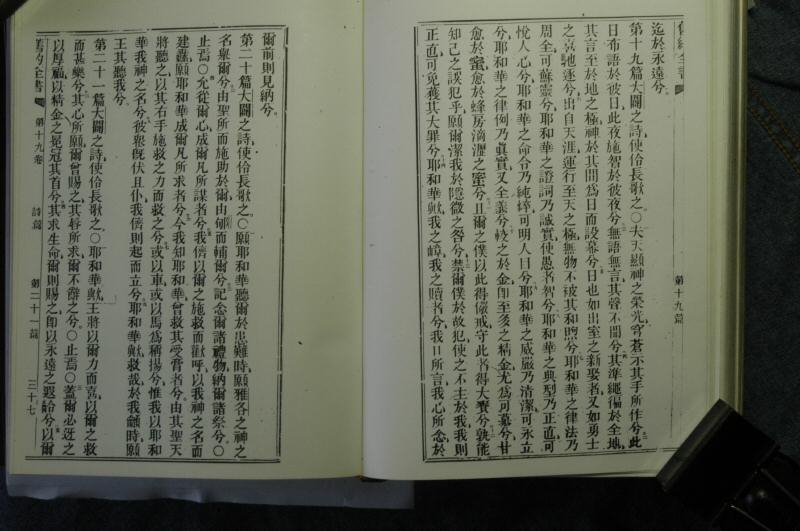 舊約全書
第十九篇
迄於永遠兮
第十九篇大闢之詩使伶長歌之○夫天顯神之榮光穹蒼示其手所作兮此
日布語於彼日此夜施智於彼夜兮無語無言其聲不聞兮其準繩徧於全地
其言至於地之極神於其間爲日而設幕兮日也如出室之新娶者又如勇士
之喜馳逐兮出自天涯運行至天之極無物不被其和煦兮耶和華之律法乃
周全可蘇靈兮耶和華之證詞乃誠實使愚者智兮耶和華之典型乃正直可
悅人心兮耶和華之命令乃純粹可明人目兮耶和華之威嚴乃清潔可永立
兮耶和華之律例乃眞實又全義兮較之於金卽至多之精金尤爲可慕兮甘
愈於蜜愈於蜂房滴瀝之蜜兮且爾之僕以此得儆戒守此者得大賚兮孰能
知己之誤犯乎願爾潔我於隱微之咎兮禁爾僕於故犯使之不主於我我則
正直可免獲其大罪兮耶和華歟我之嶂我之贖者兮我口所言我心所念於
爾前則見納兮
第二十篇大闢之詩使伶長歌之○願耶和華聽爾於患難時願雅各之神之
名舉爾兮由聖所而施助於爾由郇而輔爾兮記念爾諸禮物納爾諸祭兮○
止焉○允從爾心成爾凡所謀者兮我儕以爾之施救而歡呼以我神之名而
建纛願耶和華成爾凡所求者兮今我知耶和華曾救其受膏者兮由其聖天
將聽之以其右手施救之力而救之兮或以車或以馬爲稱揚兮惟我以耶和
華我神之名兮彼衆旣伏且仆我儕則起而立兮耶和華歟救哉於我籲時願
王其聽我兮
第二十一篇大闢之詩使伶長歌之○耶和華歟王將以爾力而喜以爾之救
而甚樂兮其心所願爾曾賜之其脣所求爾不辭之兮○止焉○蓋爾必迓之
以厚福以精金之冕冠其首兮其求生命爾則賜之卽以永遠之遐齡兮以爾
舊約全書
第十九卷
詩篇
第二十一篇
三十七